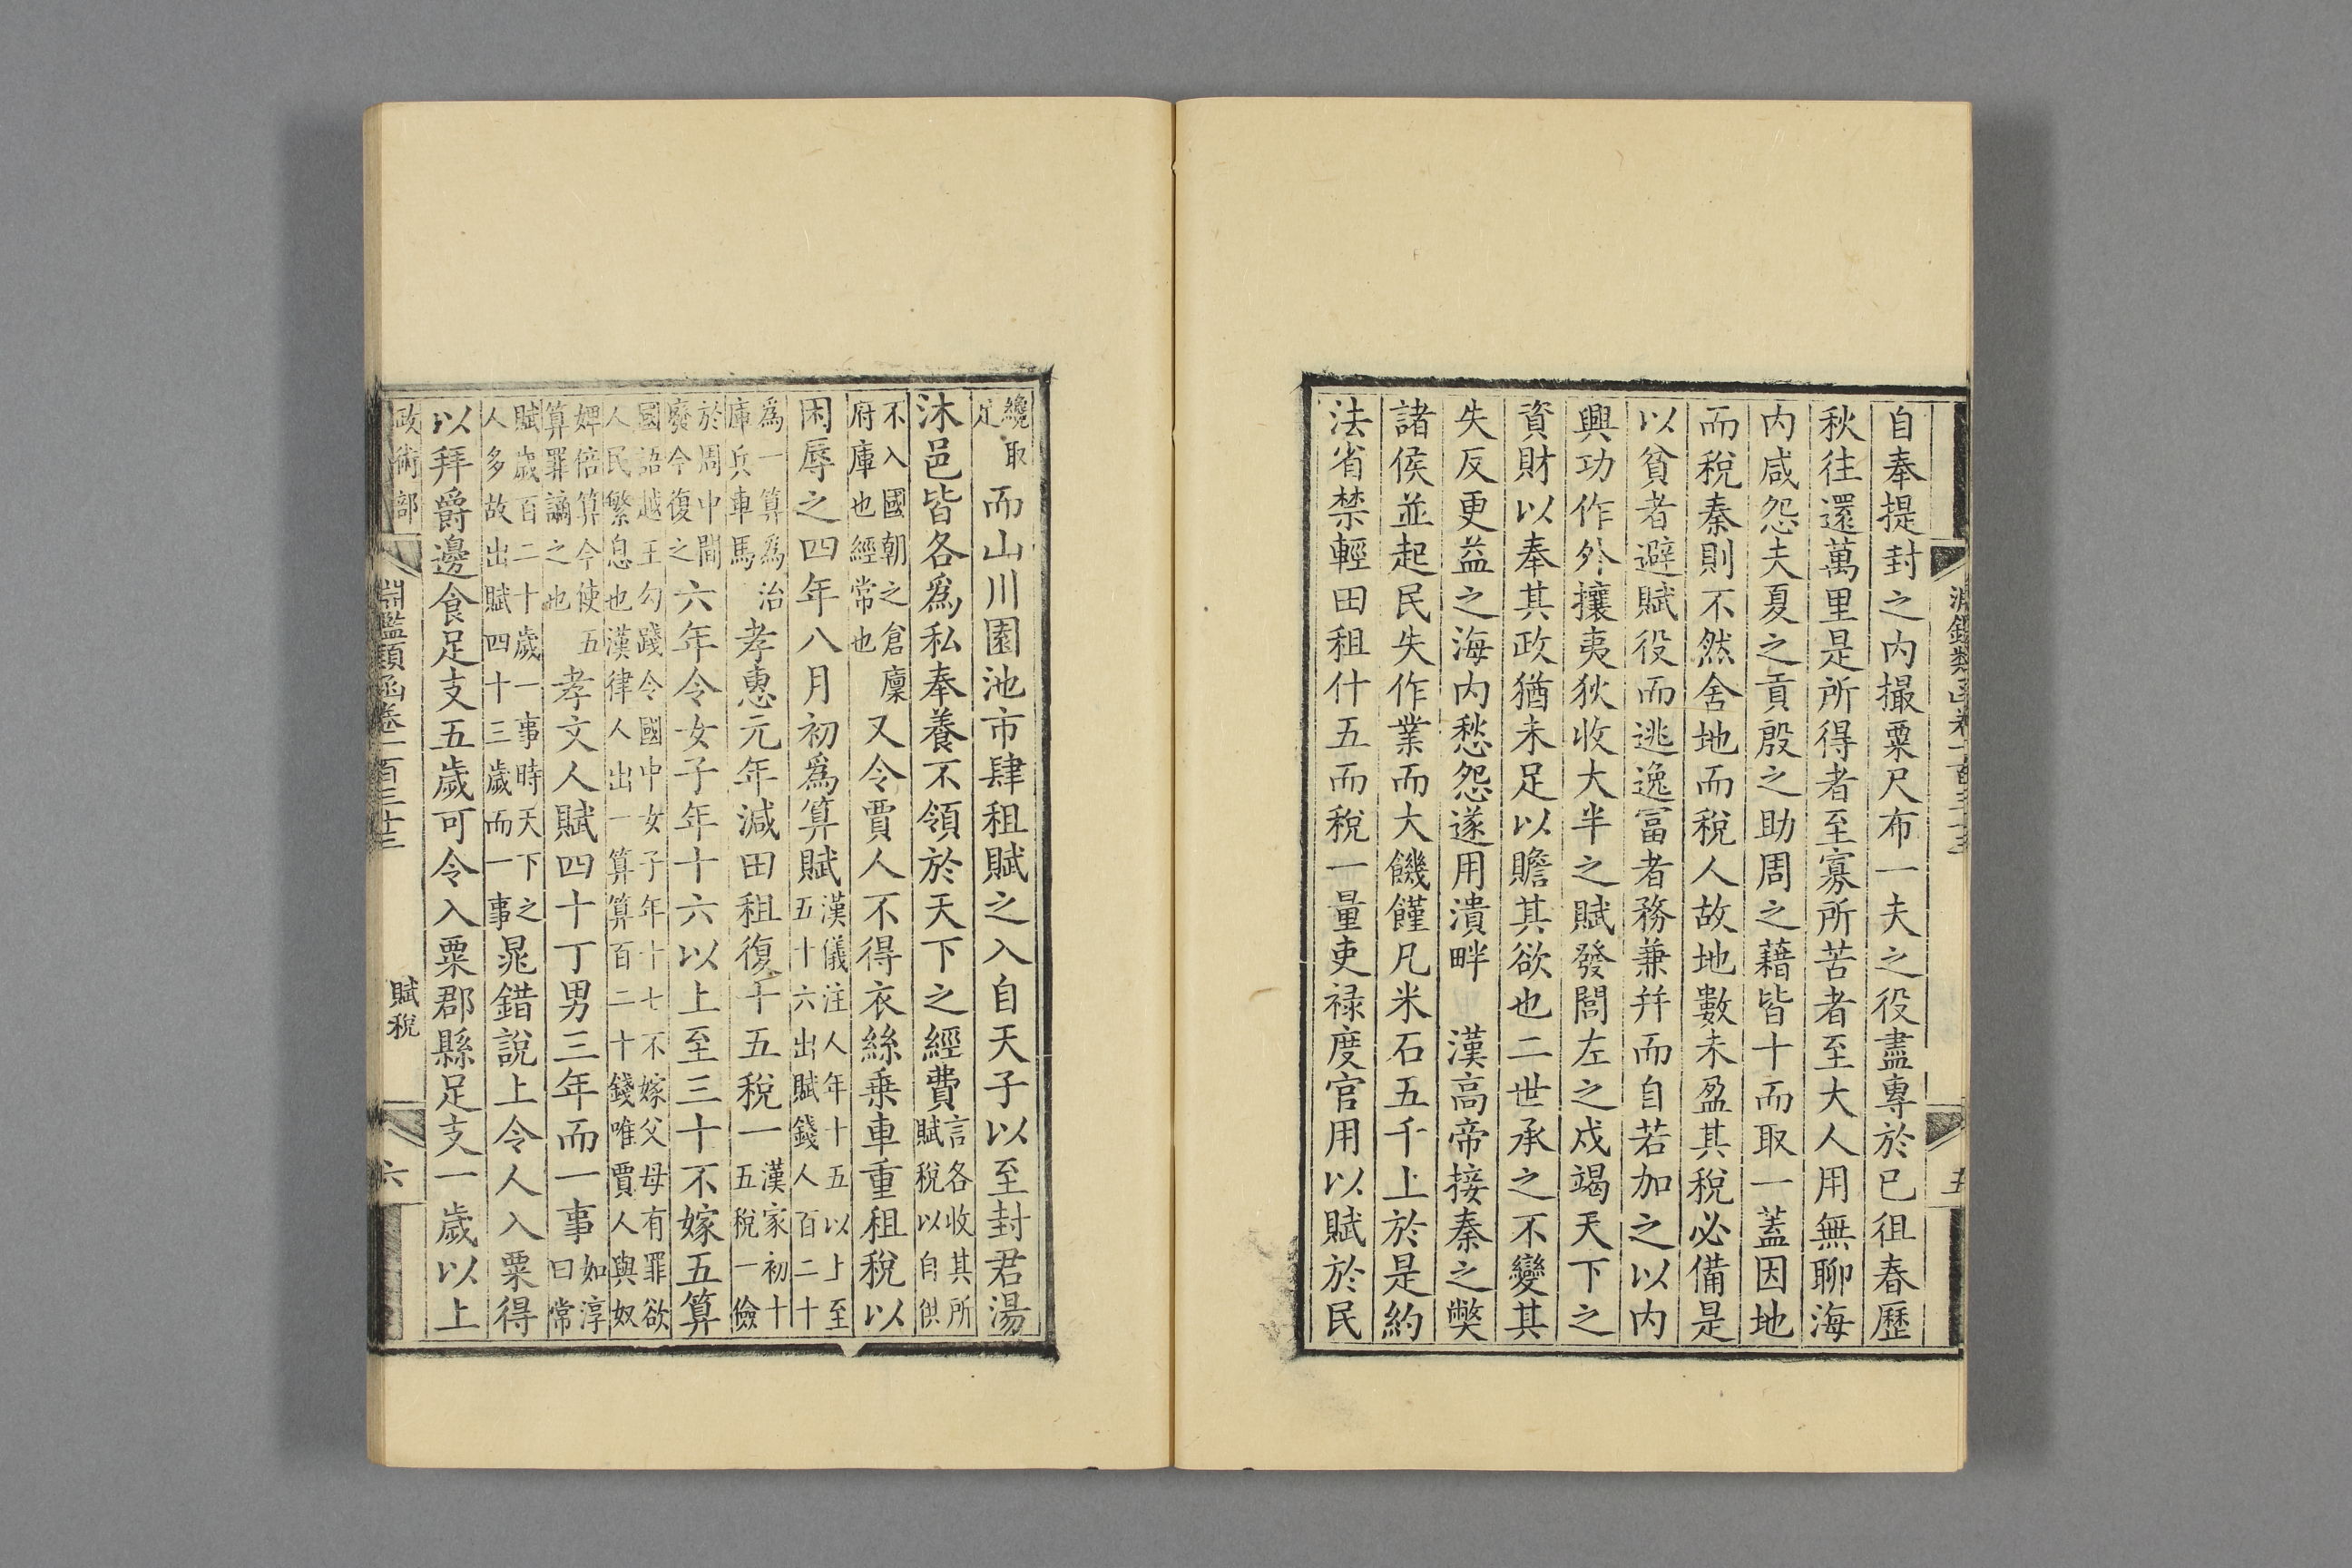 淵鑑類函卷一百三十三
五
自奉提封之内撮粟尺布一夫之役盡專於已徂春歷
秋往還萬里是所得者至寡所苦者至大人用無聊海
内咸怨夫夏之貢殷之助周之藉皆十而取一蓋因地
而稅秦則不然舍地而稅人故地數未盈其稅必備是
以貧者避賦役而逃逸冨者務兼并而自若加之以内
興功作外攘夷狄收大半之賦發閭左之戍竭天下之
資財以奉其政猶未足以贍其欲也二世承之不變其
失反更益之海内愁怨遂用潰畔 漢高帝接秦之獘
諸侯並起民失作業而大饑饉凡米石五千上於是約
法省禁輕田租什五而稅一量吏祿度官用以賦於民
纔取足而山川園池市肆租賦之入自天子以至封君湯
沐邑皆各爲私奉養不領於天下之經費言各收其所賦稅以自供
不入國朝之倉廩府庫也經常也又令賈人不得衣絲乗車重租稅以
困辱之四年八月初爲算賦漢儀注人年十五以上至五十六出賦錢人百二十
爲一算爲治庫兵車馬孝惠元年減田租復十五稅一漢家初十五稅一儉
於周中間廢今復之六年令女子年十六以上至三十不嫁五算
國語越王勾踐令國中女子年十七不嫁父母有罪欲人民繁息也漢律人出一算算百二十錢唯賈人與奴
婢倍算今使五算罪謫之也孝文人賦四十丁男三年而一事如淳曰常
賦歲百二十歲一事時天下之人多故出賦四十三歲而一事晁錯說上令人入粟得
以拜爵邊食足支五歲可令入粟郡縣足支一歲以上
政術部
淵鑑類函卷一百三十三
賦稅
六